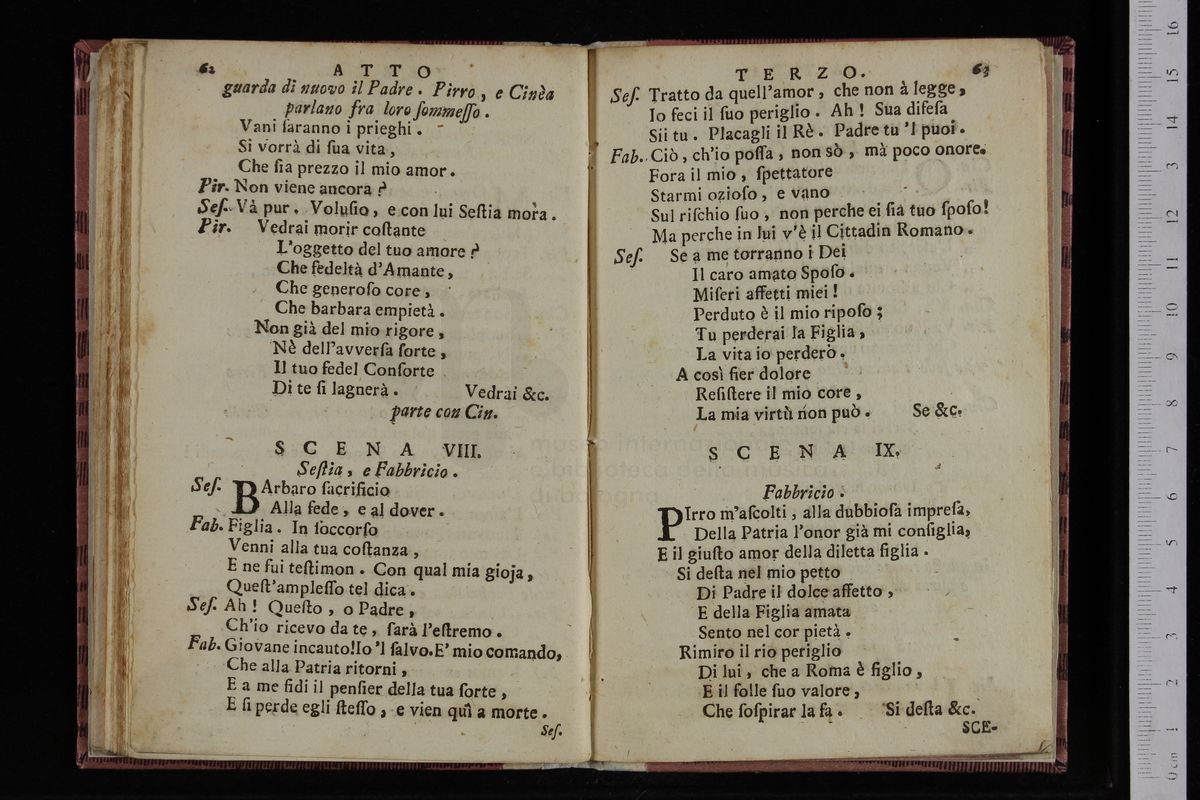 62
ATTO
guarda di nuovo il Padre. Pirro, e Cinèa
parlano fra loro ſommeſſo.
Vani ſaranno i prieghi.
Si vorrà di ſua vita,
Che ſia prezzo il mio amor.
Pir. Non viene ancora?
Seſ. Và pur. Voluſio, e con lui Seſtia mora.
Pir. Vedrai morir coſtante
L'oggetto del tuo amore?
Che fedeltà d'Amante,
Che generoſo core,
Che barbara empietà.
Non già del mio rigore,
Nè dell'avverſa ſorte,
Il tuo fedel Conſorte
Di te ſi lagnerà. Vedrai &c.
parte con Cin.
SCENA VIII.
Seſtia, e Fabbricio.
Seſ. BArbaro ſacrificio
Alla fede, e al dover.
Fab. Figlia. In ſoccorſo
Venni alla tua coſtanza,
E ne fui teſtimon. Con qual mia gioja,
Queſt'ampleſſo tel dica.
Seſ. Ah! Queſto, o Padre,
Ch'io ricevo da te, ſarà l'eſtremo.
Fab. Giovane incauto!Io 'l ſalvo.E' mio comando,
Che alla Patria ritorni,
E a me fidi il penſier della tua ſorte,
E ſi perde egli ſteſſo, e vien quì a morte.
Seſ.
TERZO. 63
Seſ. Tratto da quell'amor, che non à legge,
Io feci il ſuo periglio. Ah! Sua difeſa
Sii tu. Placagli il Rè. Padre tu 'l puoi.
Fab. Ciò, ch'io poſſa, non sò, mà poco onore.
Fora il mio, ſpettatore
Starmi ozioſo, e vano
Sul riſchio ſuo, non perche ei ſia tuo ſpoſo!
Ma perche in lui v'è il Cittadin Romano.
Seſ. Se a me torranno i Dei
Il caro amato Spoſo.
Miſeri affetti miei!
Perduto è il mio ripoſo;
Tu perderai la Figlia,
La vita io perderò.
A così fier dolore
Reſiſtere il mio core,
La mia virtù non può. Se &c.
SCENA IX.
Fabbricio.
PIrro m'aſcolti, alla dubbioſa impreſa,
Della Patria l'onor già mi conſiglia,
E il giuſto amor della diletta figlia.
Si deſta nel mio petto
Di Padre il dolce affetto,
E della Figlia amata
Sento nel cor pietà.
Rimiro il rio periglio
Di lui, che a Roma è figlio,
E il folle ſuo valore,
Che ſoſpirar la fa. Si deſta &c.
SCE-
museo internazionale
e biblioteca della musica
di bologna
0 cm 1 2 3 4 5 6 7 8 9 10 11 12 13 14 15 16